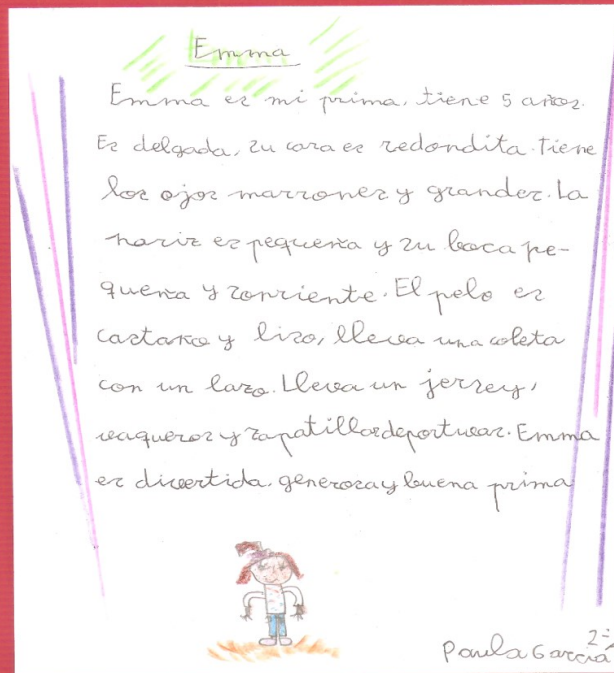 Emma
Emma es mi prima, tiene 5 años.
Es delgada, su cara es redondita. Tiene
los ojos marrones y grandes. La
nariz es pequeña y su boca pe-
queña y sonriente. El pelo es
castaño y liso, lleva una coleta
con un lazo. Lleva un jersey,
vaqueros y zapatillas deportivas. Emma
es divertida, generosa y buena prima
Paula García